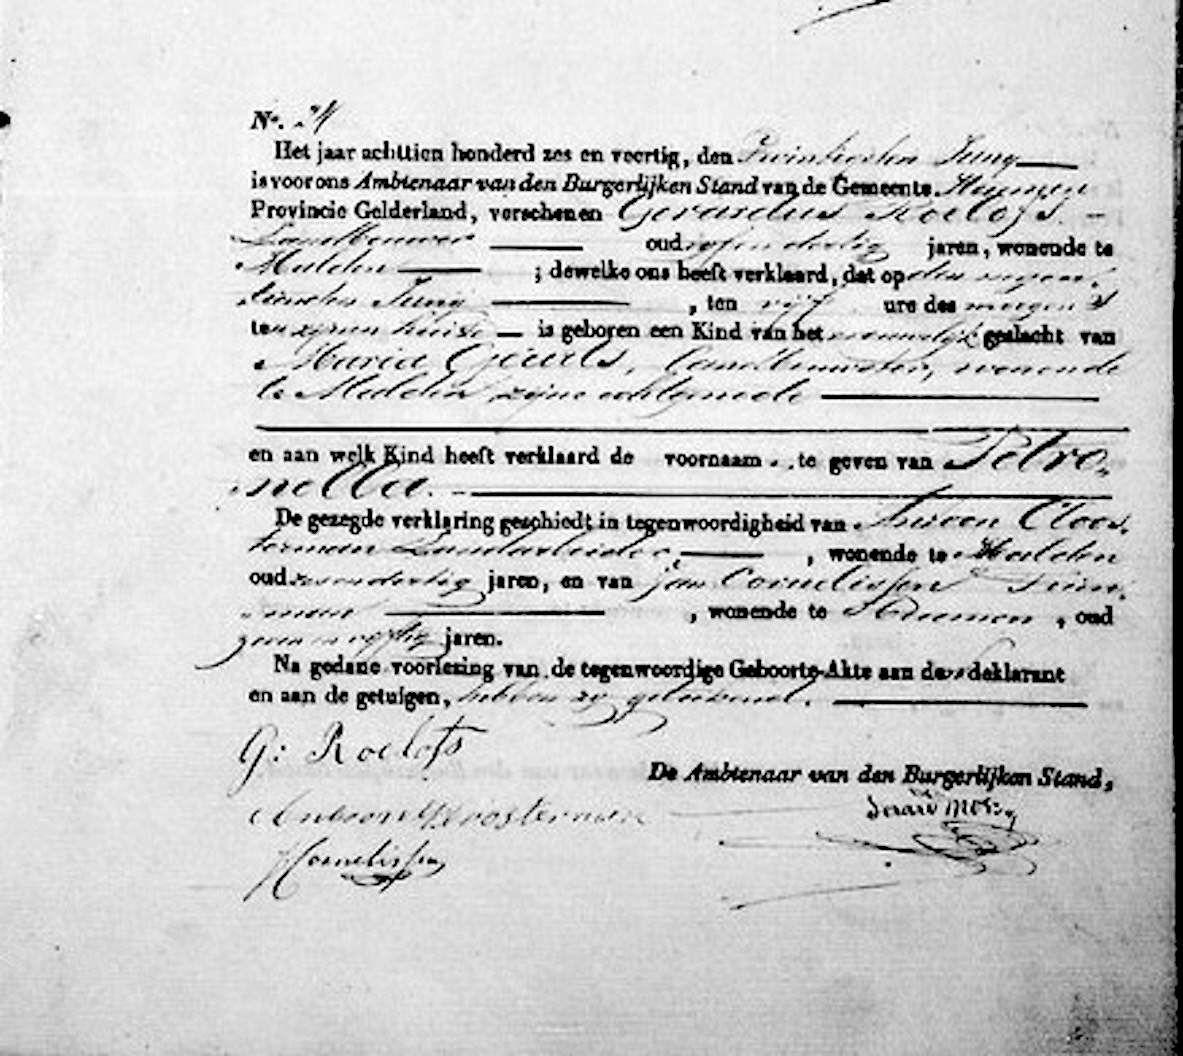 No. 24
Het jaar achttien honderd zes en veertig, den Twintigsten Juny
is voor ons Ambtenaar van den Burgerlijken Stand van de Gemeente Heumen
Provincie Gelderland, verschenen Gerardus Roelofs.
Landbouwer oud vyf en dertig jaren, wonende te
Malden ; dewelke ons heeft verklaard, dat op den negen-
tienden Juny , ten vijf ure des morgens
ten zynen huize is geboren een Kind van het vrouwelijk geslacht van
Maria Geurts, Landbouwster, wonende
te Malden zijne echtgenoote
en aan welk Kind heeft verklaard de voornaam te geven van Petro-
nella.
De gezegde verklaring geschiedt in tegenwoordigheid van Antoon Cloos-
terman Landarbeider, , wonende te Malden
oud jaren, en van Jan Cornelissen
, wonende te Heumen , oud
jaren.
Na gedane voorlezing van de tegenwoordige Geboorte-Akte aan den deklarant
en aan de getuigen, hebben zy geteekend.
G: Roelofs
De Ambtenaar van den Burgerlijken Stand,
Antoon Kloosterman
Cornelissen